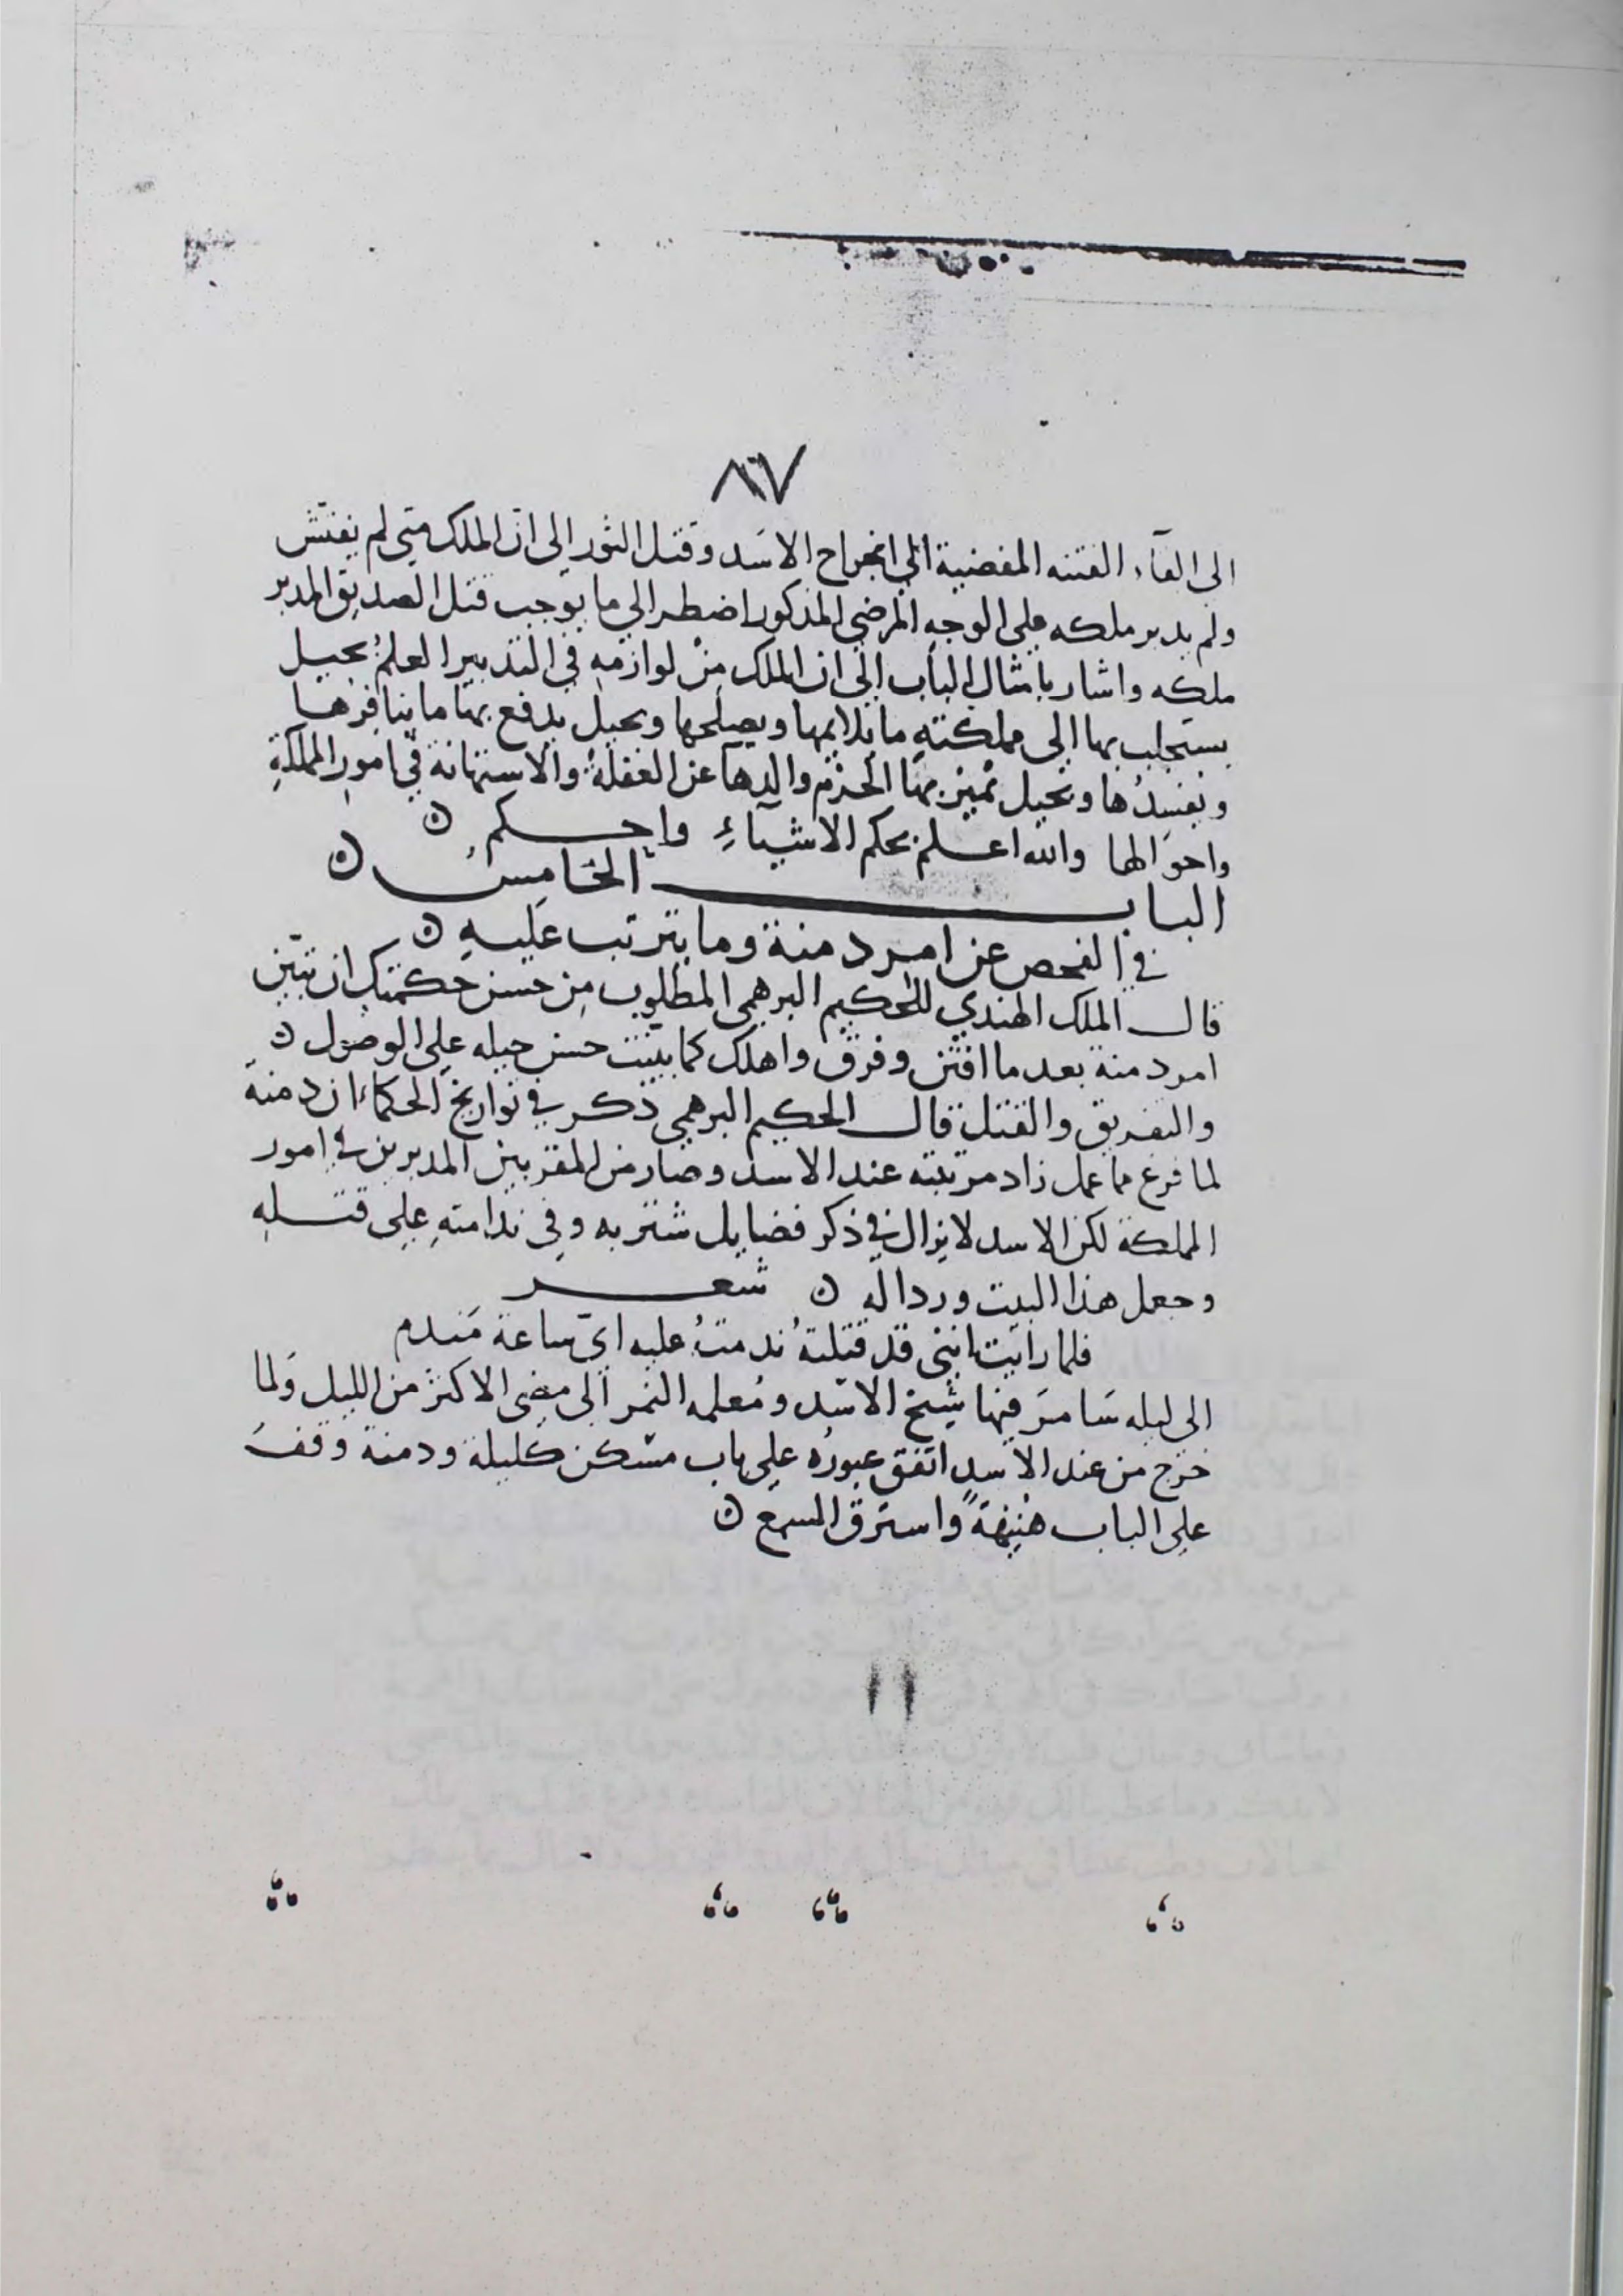 ٨٧
الى القآء الفتنه المفضية الى انجراح الاسد وقتل الثور الى ان الملك متى لم يفتش
ولم يدبر ملكه على الوجه المرضي المذكور اضطر الي ما يوجب قتل الصديق المدبر
ملكه واشار بامثال الباب الى ان الملك من لوازمه في التدبير العلم بحيل
يستجلب بها الى مملكته ما يلايمها ويصلحها وبحيل يدفع بها ما ينافرها
ويفسدها وبحيل تميز بها الحزم والدهآ عن الغفلة والاستهانة في امور المملكة
واحوالها والله اعلم بحكم الاشيآء واحكم ٥
الباب الخامس ٥
في الفحص عن امر دمنة وما يترتب عليه ٥
قال الملك الهندي للحكيم البرهمي المطلوب من حسن حكمتك ان تبين
امر دمنة بعد ما افتن وفرق واهلك كما بينت حسن حيله على الوصول ٥
والتفريق والقتل قال الحكيم البرهمي ذكر في تواريخ الحكماء ان دمنة
لما فرغ مما عمل زاد مرتبته عند الاسد وصار من المقربين المدبرين في امور
المملكة لكن الاسد لا يزال في ذكر فضايل شنزبه وفي ندامته على قتله
وجعل هذا البيت وردا له ٥ شعر
فلما رايت انني قد قتلته ندمت عليه اي ساعة مندم
الى ليله سامر فيها شيخ الاسد ومعلمه النمر الى مضى الاكثر من الليل ولما
خرج من عند الاسد اتفق عبوره على باب مسكن كليلة ودمنة وقف
على الباب هنيهة واسترق السمع ٥
١١